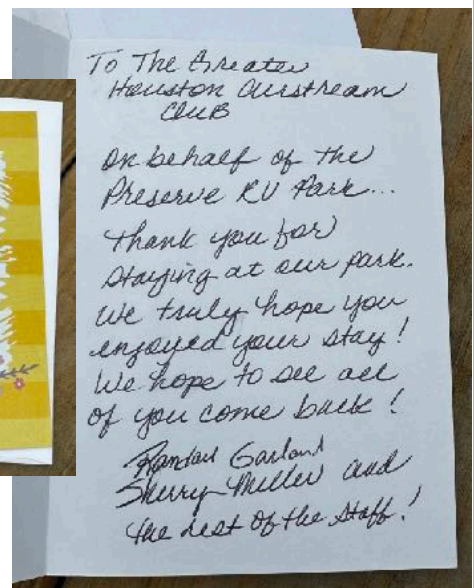 To The Greater
Houston Airstream
Club
On behalf of the
Preserve RV Park...
Thank you for
staying at our park.
We truly hope you
enjoyed your stay!
We hope to see all
of you come back!
Randall Garland
Sherry Miller and
the rest of the staff!